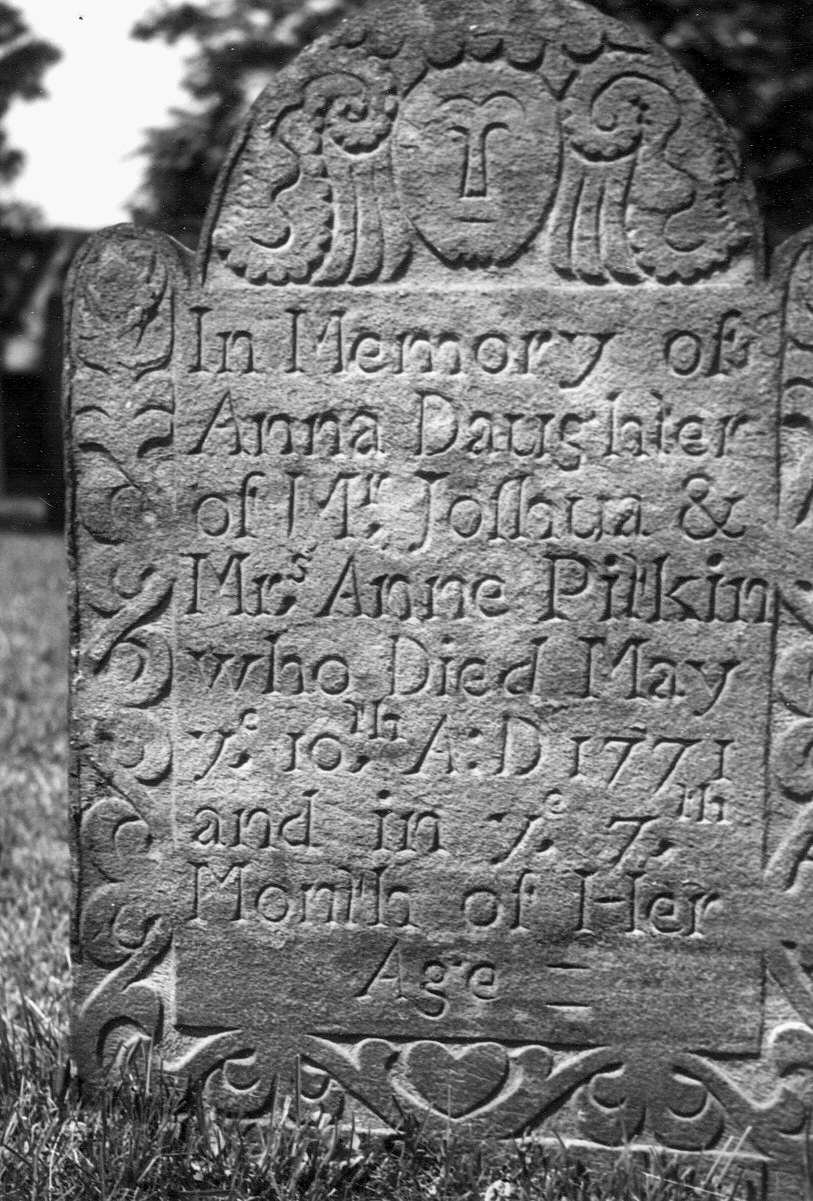 In Memory of
Anna Daughter
of Mr. Joſhua &
Mrs. Anne Pitkin
who Died May
ye. 10.th A:D 1771
and in ye. 7.th
Month of Her
Age =